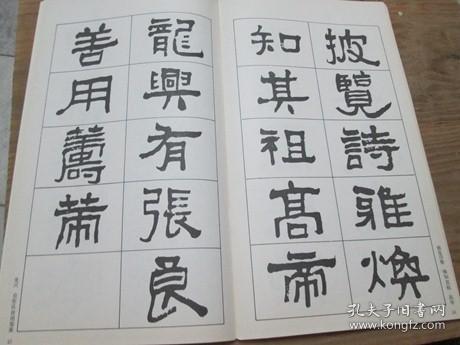 披覽詩雅煥
知其祖高帝
龍興有張良
善用籌策
孔夫子旧书网